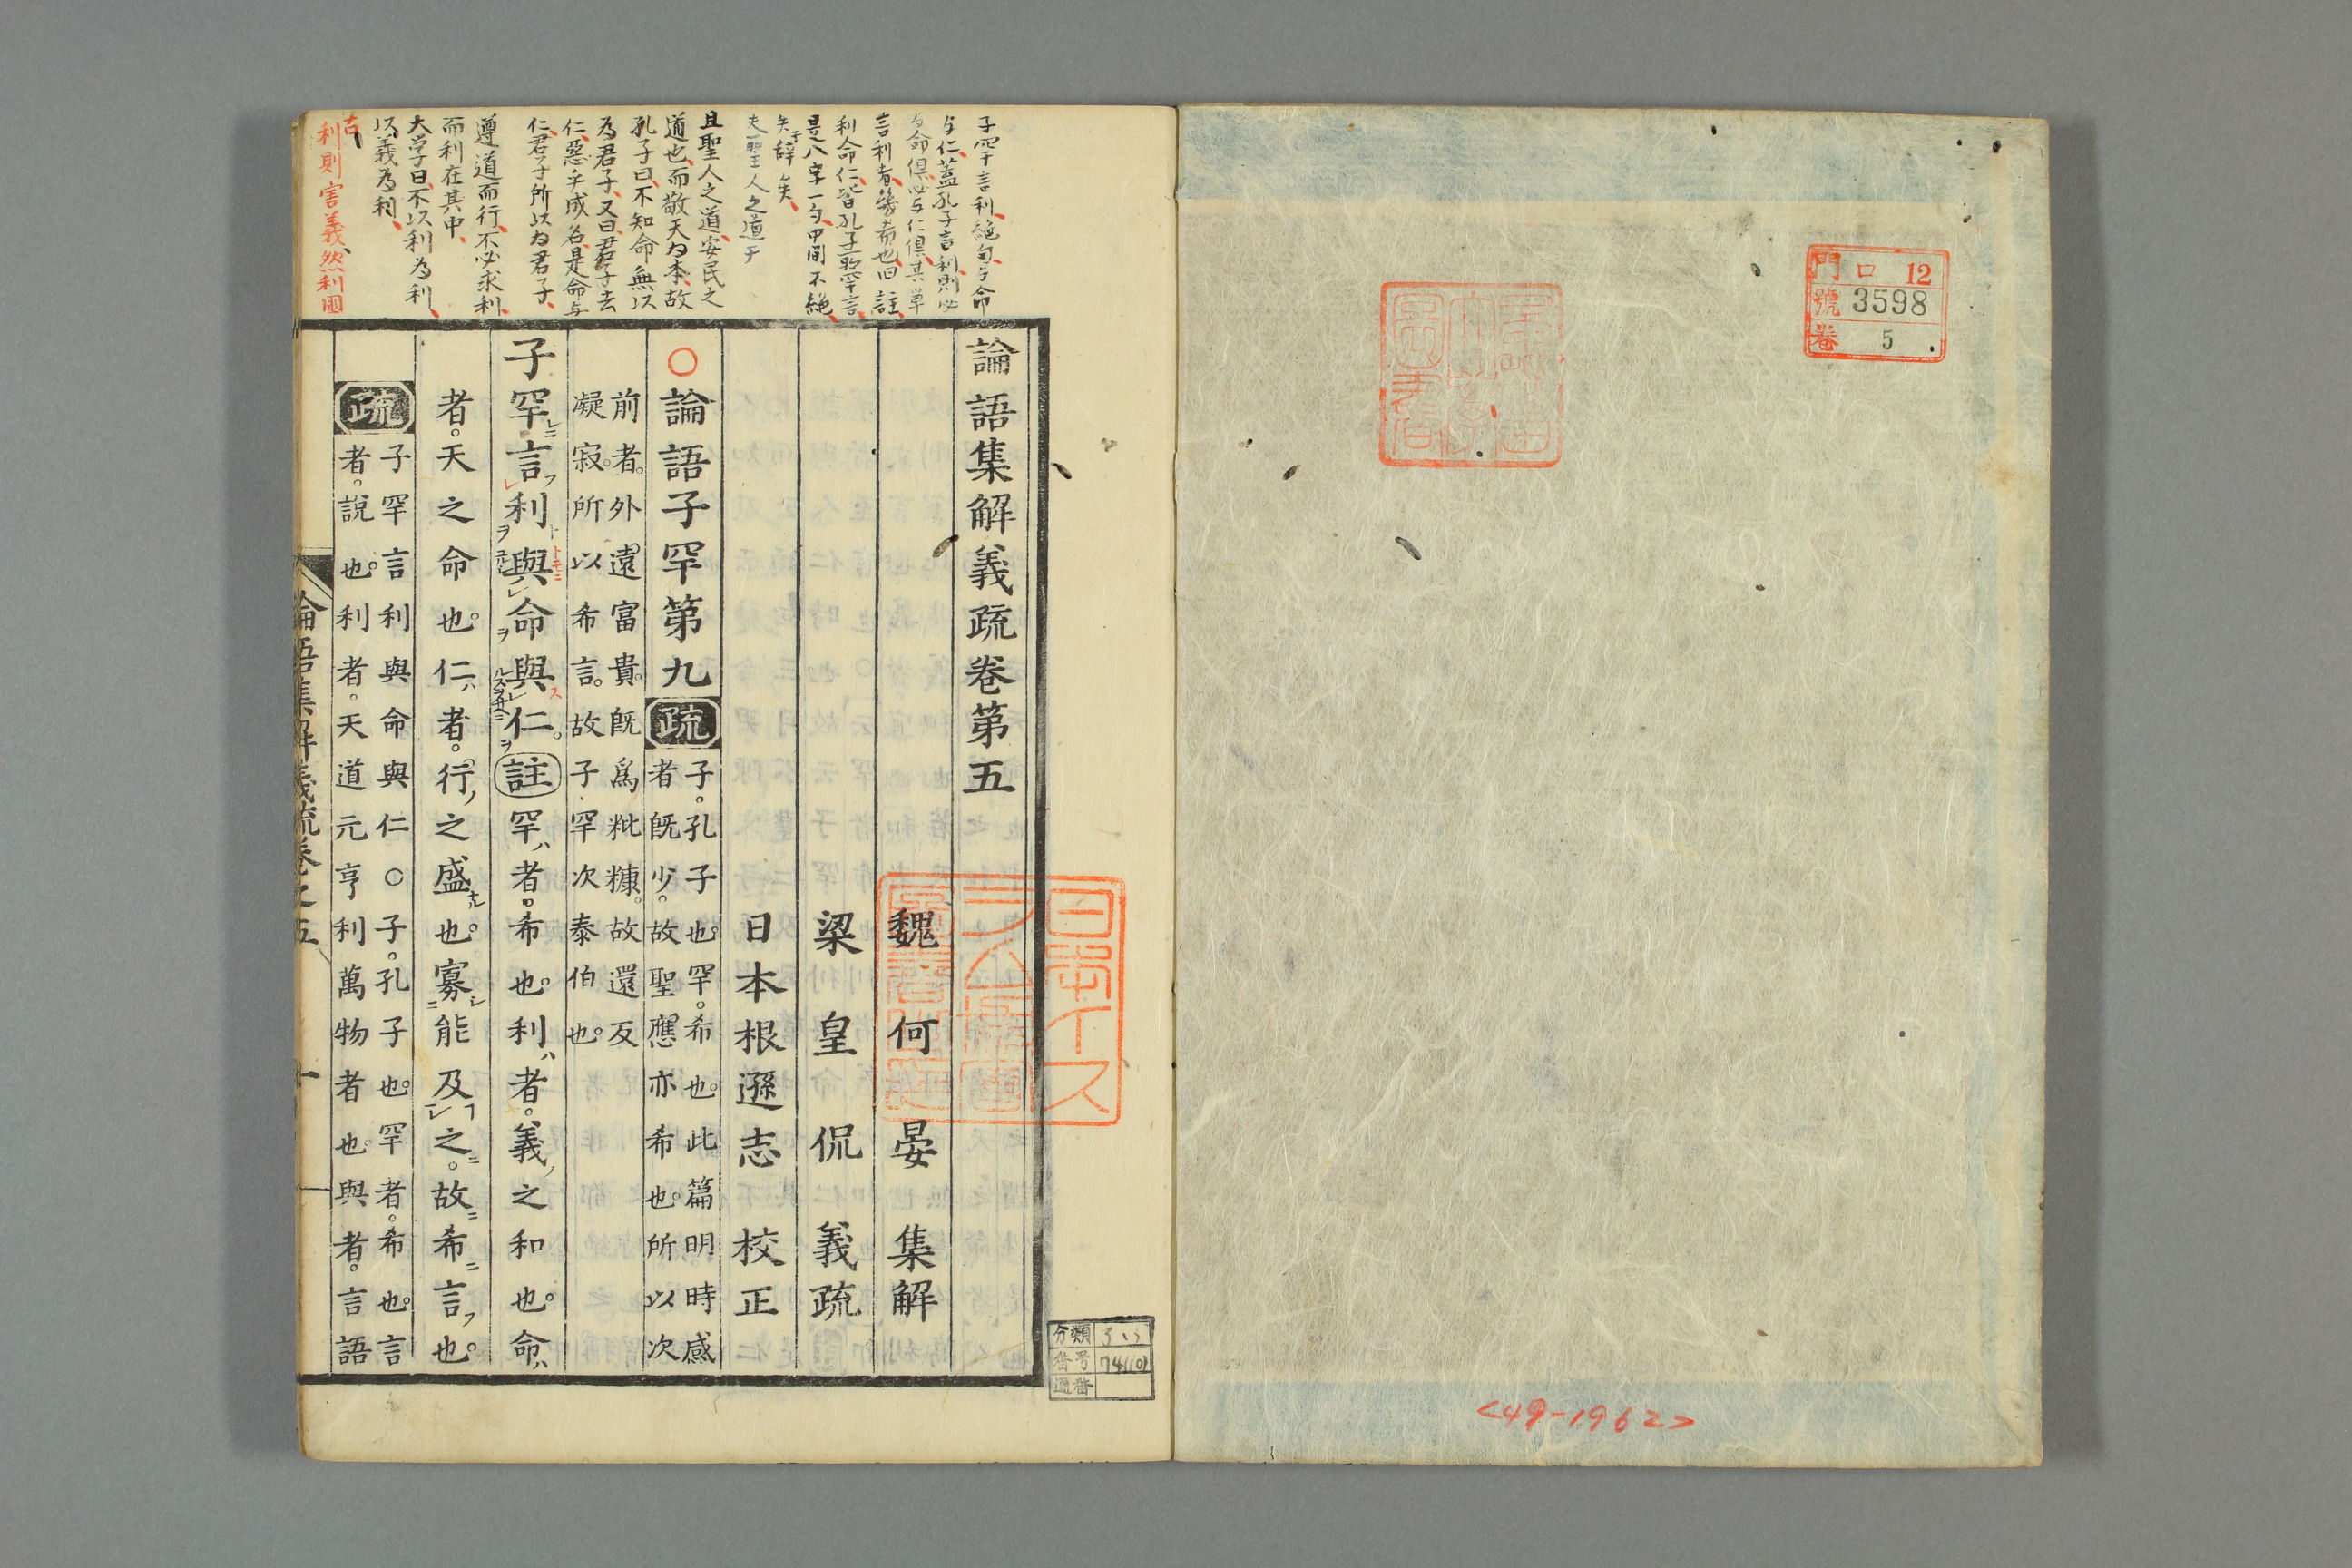 門 口 12
號 3598
卷 5
<49-1962>
論語集解義疏卷第五
魏 何 晏 集解
梁 皇 侃 義疏
日本根遜志 校正
○論語子罕第九 疏 子。孔子也。罕。希也。此篇明時感
者既少。故聖應亦希也。所以次
前者。外遠富貴。既爲粃糠。故還反
凝寂。所以希言。故子罕次泰伯也。
子罕言利與命與仁。註罕者。希也。利者。義之和也。命
者。天之命也。仁者。行之盛也。寡能及之。故希言也。
疏 子罕言利與命與仁○子。孔子也。罕者。希也。言
者。說也。利者。天道元亨利萬物者也。與者。言語
論語集解義疏卷之五
一
子罕言利絶句与命
与仁蓋孔子言利則必
与命倶必与仁倶其単
言利者幾希也旧註
利命仁皆孔子所罕言
是八字一句中間不絶
矣辞矣
夫聖人之道于
且聖人之道安民之
道也而敬天为本故
孔子曰不知命無以
為君子又曰君子去
仁惡乎成名是命与
仁君子所以为君子
遵道而行不必求利
而利在其中
大学曰不以利為利
以義為利
利則害義然利國
分類
番号 74(10)
通番